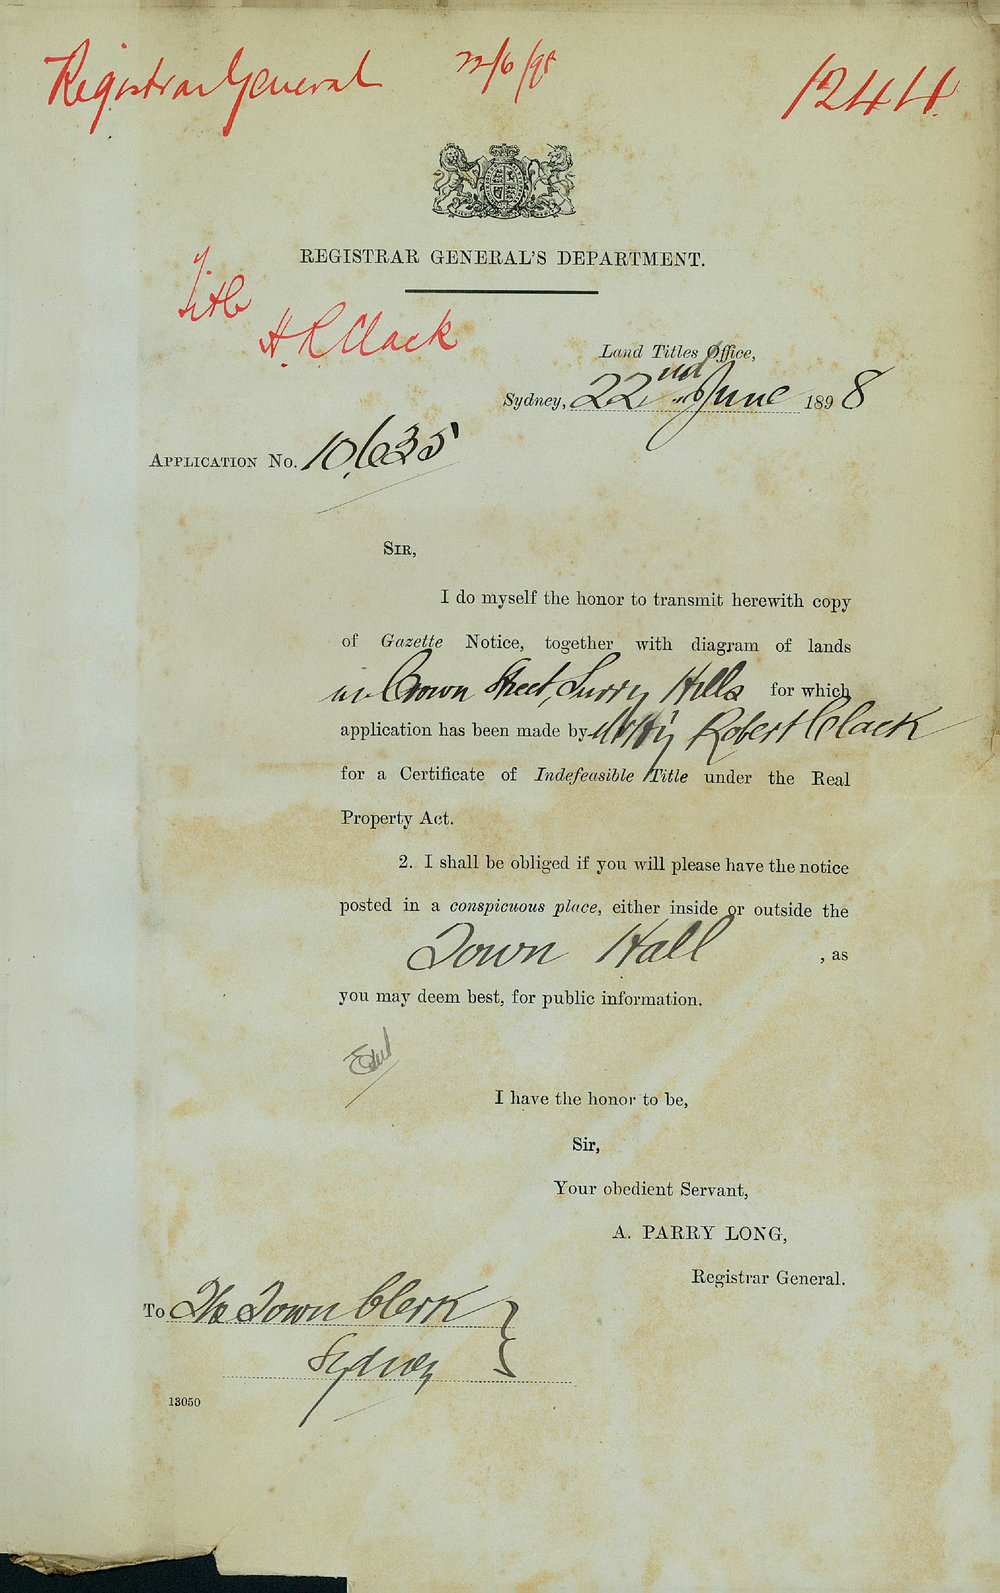 Registrar General 22/6/98 1244
REGISTRAR GENERAL'S DEPARTMENT.
Title
H. R. Clack
Land Titles Office,
Sydney, 22nd June 1898
APPLICATION No. 10,635
SIR,
I do myself the honor to transmit herewith copy
of Gazette Notice, together with diagram of lands
in Crown Street, Surry Hills for which
application has been made by Robert Clack
for a Certificate of Indefeasible Title under the Real
Property Act.
2. I shall be obliged if you will please have the notice
posted in a conspicuous place, either inside or outside the
Town Hall , as
you may deem best, for public information.
I have the honor to be,
Sir,
Your obedient Servant,
A. PARRY LONG,
Registrar General.
To The Town Clerk
Sydney
13050